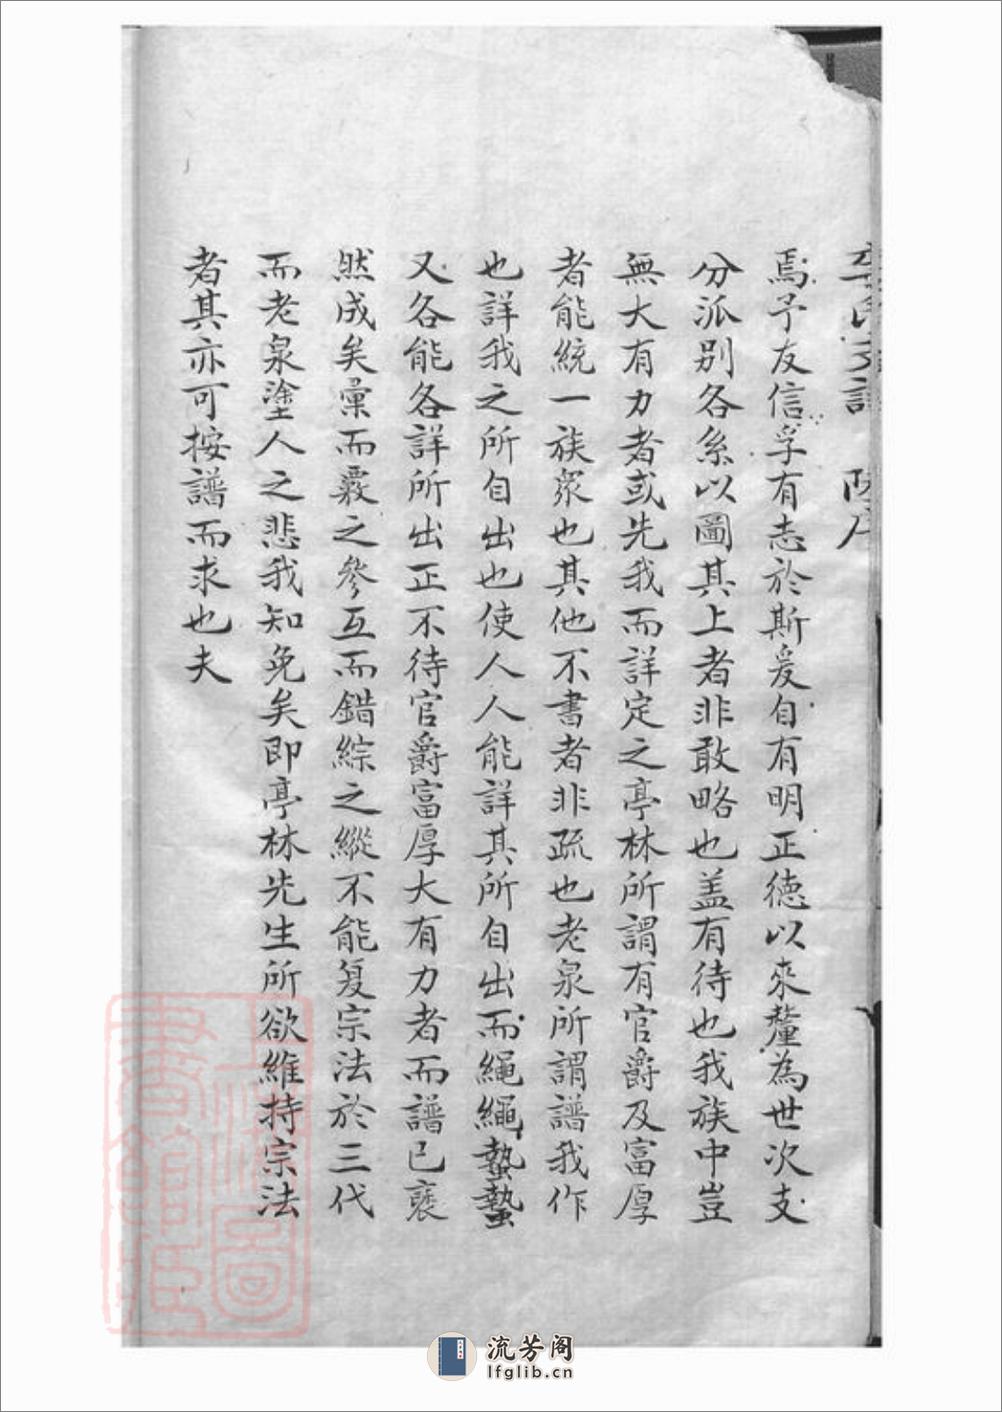 李氏支譜 陸序
焉予友信孚有志於斯爰自有明正德以來釐為世次支
分派别各系以圖其上者非敢略也盖有待也我族中豈
無大有力者或先我而詳定之亭林所謂有官爵及富厚
者能統一族衆也其他不書者非疏也老泉所謂譜我作
也詳我之所自出也使人人能詳其所自出而繩繩蟄蟄
又各能各詳所出正不待官爵富厚大有力者而譜已裒
然成矣彙而裦之參互而錯綜之縱不能复宗法於三代
而老泉塗人之悲我知免矣即亭林先生所欲維持宗法
者其亦可按譜而求也夫
上海圖
書館藏
流芳阁
lfglib.cn